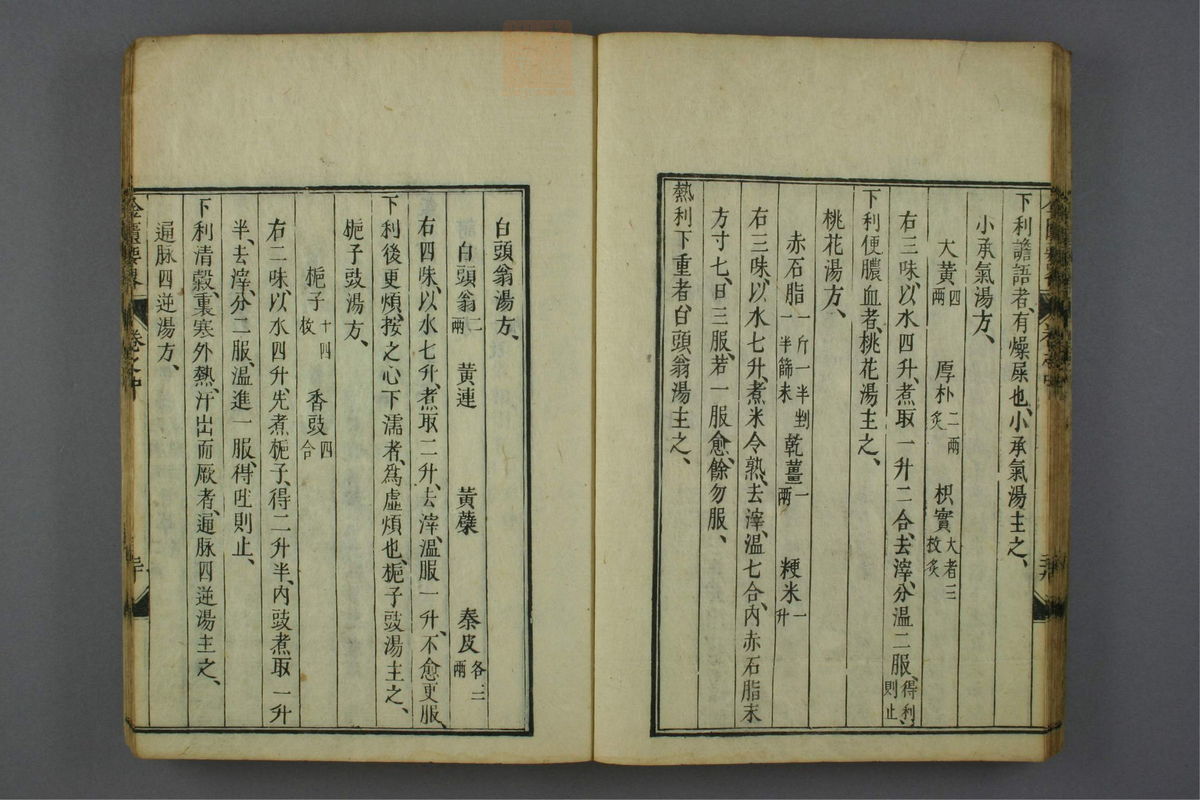 下利譫語者、有燥屎也、小承氣湯主之、
小承氣湯方、
大黃四兩 厚朴二兩炙 枳實大者三枚炙
右三味、以水四升、煮取一升二合、去滓、分溫二服、得利、則止、
下利便膿血者、桃花湯主之、
桃花湯方、
赤石脂一斤一半剉一半篩末 乾薑一兩 粳米一升
右三味、以水七升、煮米令熟、去滓、溫七合、內赤石脂末
方寸七、日三服、若一服愈、餘勿服、
熱利下重者、白頭翁湯主之、
白頭翁湯方、
白頭翁二兩 黃連 黃蘗 秦皮各三兩
右四味、以水七升、煮取二升、去滓、溫服一升、不愈更服、
下利後更煩、按之心下濡者、為虛煩也、梔子豉湯主之、
梔子豉湯方、
梔子十四枚 香豉四合
右二味、以水四升、先煮梔子、得二升半、內豉、煮取一升
半、去滓、分二服、溫進一服、得吐則止、
下利清穀、裏寒外熱、汗出而厥者、通脉四逆湯主之、
通脉四逆湯方、
金匱要略 卷之中 三十